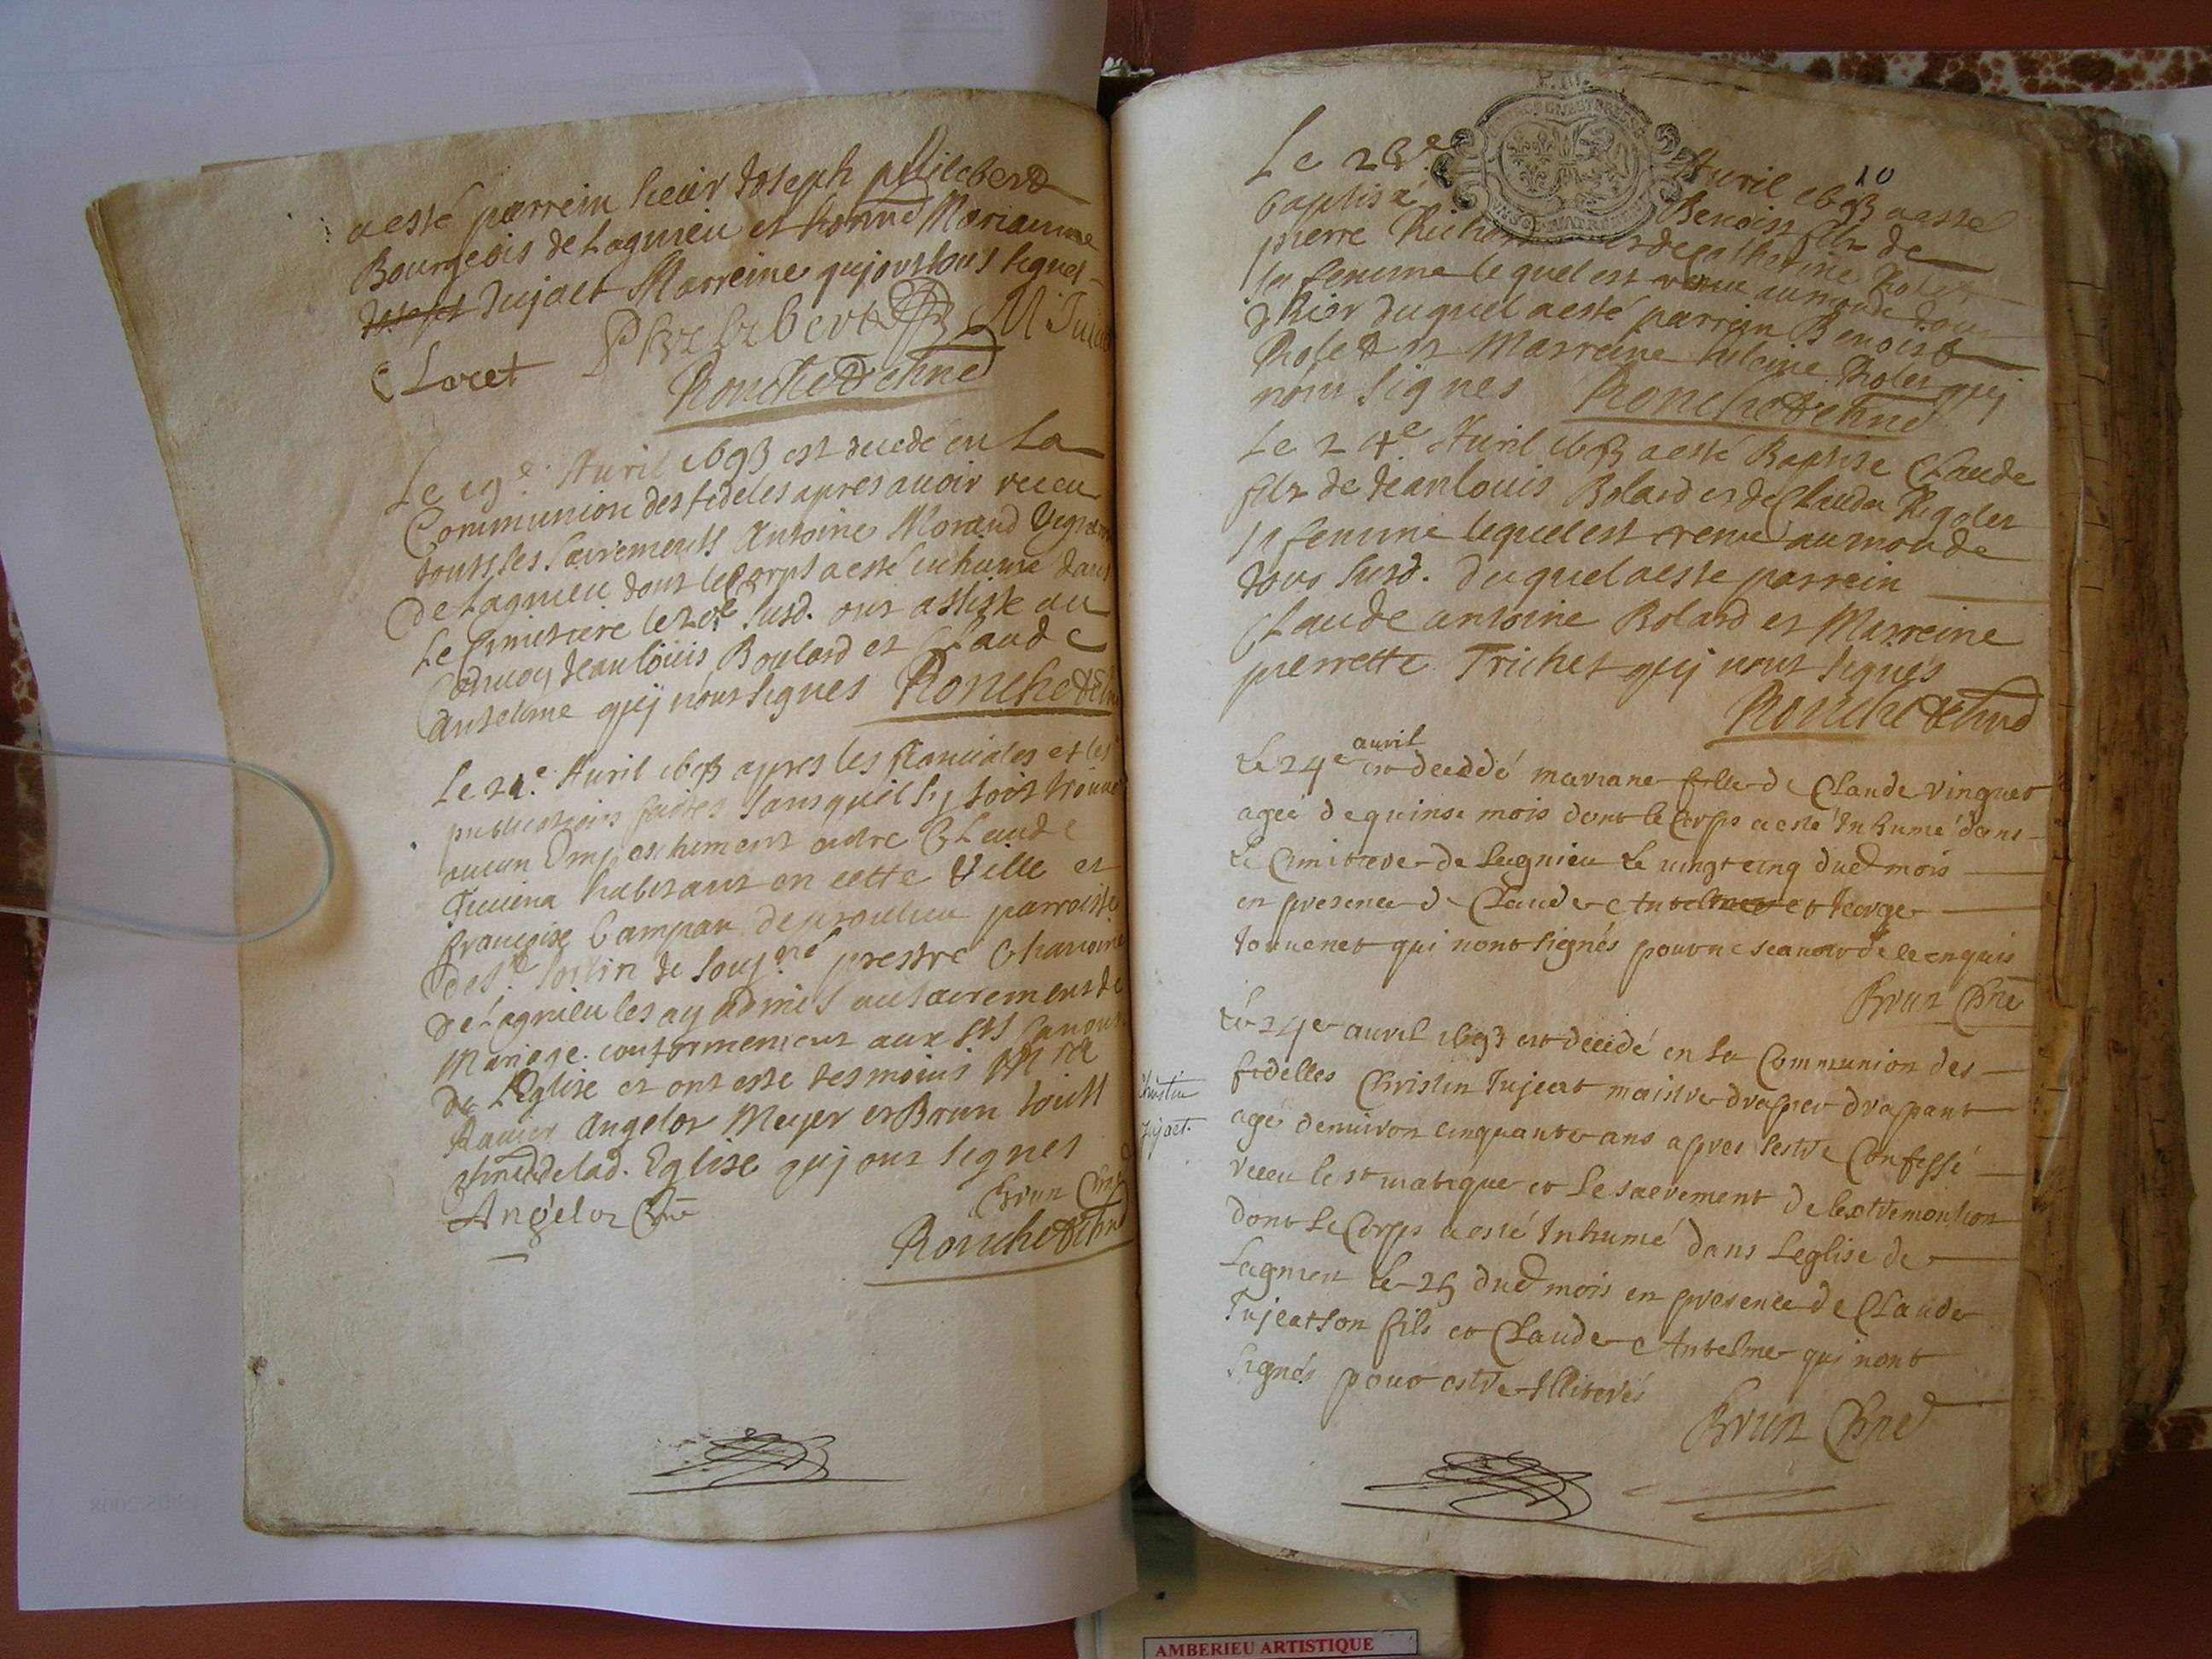 a esté parrein sieur Joseph philibert
Bourgeois de Lagnieu et honne Marianne
Joseph Jujact Marreine qui ont tous signes
C Loret Philibert M Jujact
Ronchet chne
Le 19e. Auril 1693 est decedé en La
Communion des fideles apres auoir receu
touts les Sacrements Antoine Morand Vigneron
de Lagnieu dont le Corps a esté inhumé dans
Le Cimetiere le 20e susd. ont assisté au
Conuoy Jean Loüis Boulard et Claude
Antelme quy n'ont signes Ronchet chne
Le 21e. Auril 1693 apres les fiancailes et les
publications faites sans quil s'y soit trouué
aucun Empeschement autre Claude
Juuena habitant en cette Ville et
francoise Campan de proulieu parroisse
de St. Sorlin Je sougné prestre Chanoine
de Lagnieu les ay admis au sacrement de
Mariage conformement aux Sts Canons
de L'Eglise et ont esté tesmoins Mre
Rauier Angelot Meyer et Brun touts
chnes de lad. Eglise quy ont signes
Angelot Chne Brun Chne
Ronchet chne
10
Le 23e Auril 1693 a esté
baptisé Benoist fils de
pierre Richar et de Catherine Rolet
sa femme lequel est venu au monde dou
d'hier duquel a esté parrein Benoist
Rolet et Marreine heleine Rolet quy
n'ont signes Ronchet chne
Le 24e. Auril 1693 a esté Baptisé Claude
fils de Jean louis Bolard et de Clauda Rigolet
sa femme lequel est venu au monde
Jour susd. duquel a esté parrein
Claude antoine Bolard et Marreine
pierrette Trichet quy n'ont signés
Ronchet chne
auril
Le 24e est deceddé mariane fille de Claude Vinguet
ageé de quinse mois dont le Corps a esté Inhumé dans
Le Cimitiere de Lagnieu Le vingt cinq dud mois
en presence de Claude Antelme et George
Jouuenet qui n'ont signés pour ne scauoir de ce enquis
Brun Chne
Le 24e auril 1693 est decedé en La Communion des
Christin
Jujact.
fidelles Christin Jujeat maistre drapier drapant
agé denuiron cinquante ans apres sestre Confessé
receu le st uiatique et Le sacrement de lextremontion
dont Le Corps a esté Inhumé dans Leglise de
Lagnieu Le 25 dud mois en presence de Claude
Jujeat son fils et Claude Antelme qui n'ont
signés pour estre Illiterés
Brun Chne
AMBERIEU ARTISTIQUE